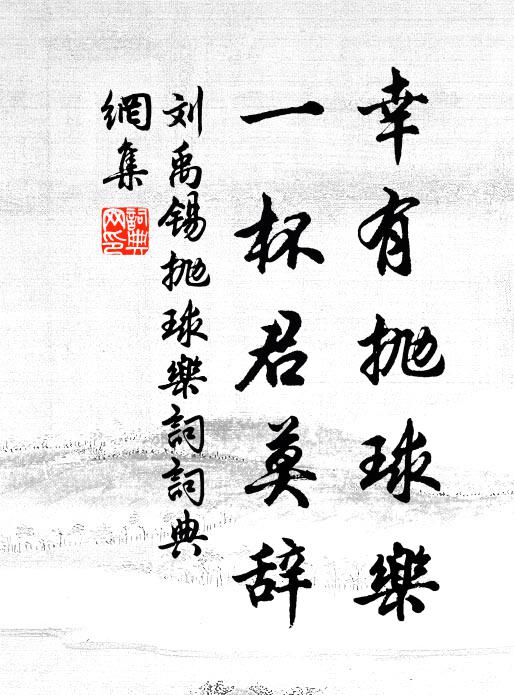 幸有抛球樂
一杯君莫辞
刘禹锡抛球樂詞詞典
網集
詞典
网印